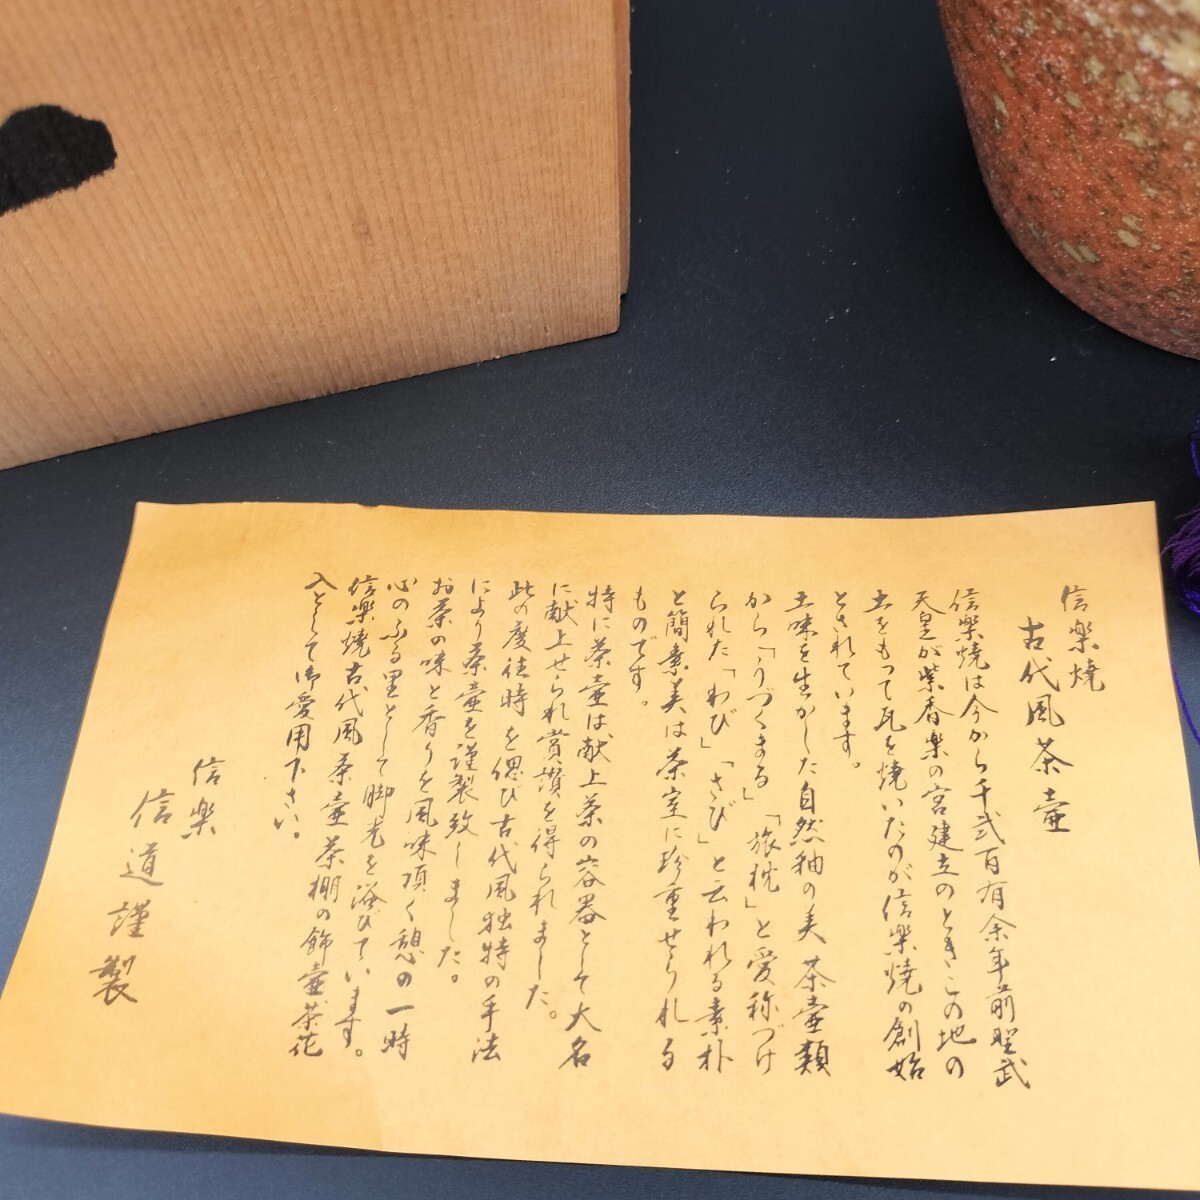 信楽焼
古代風茶壷
信楽焼は今から千弐百有余年前聖武
天皇が紫香楽の宮建立のときこの地の
土をもって瓦を焼いたのが信楽焼の創始
とされています。
土味を生かした自然釉の美 茶壷類
から「うづくまる」「旅枕」と愛称づけ
られた「わび」「さび」と云われる素朴
と簡素美は茶室に珍重せられる
ものです。
特に茶壷は献上茶の容器として大名
に献上せられ賞讃を得られました。
此の度往時を偲び古代風独特の手法
により茶壷を謹製致しました。
お茶の味と香りを風味頂く憩の一時
心のふる里として脚光を浴びています。
信楽焼古代風茶壷茶棚の飾壷茶花
入として御愛用下さい。
信楽
信道謹製